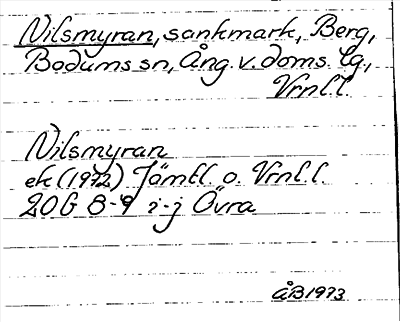 Nilsmyran, sankmark, Berg,
Bodums sn, Ång. v. doms. lg.,
Vrnl.l.
Nilsmyran
ek (1972) Jämtl. o. Vrnl.l.
20G 8-9 i-j Övra
ÅB1973